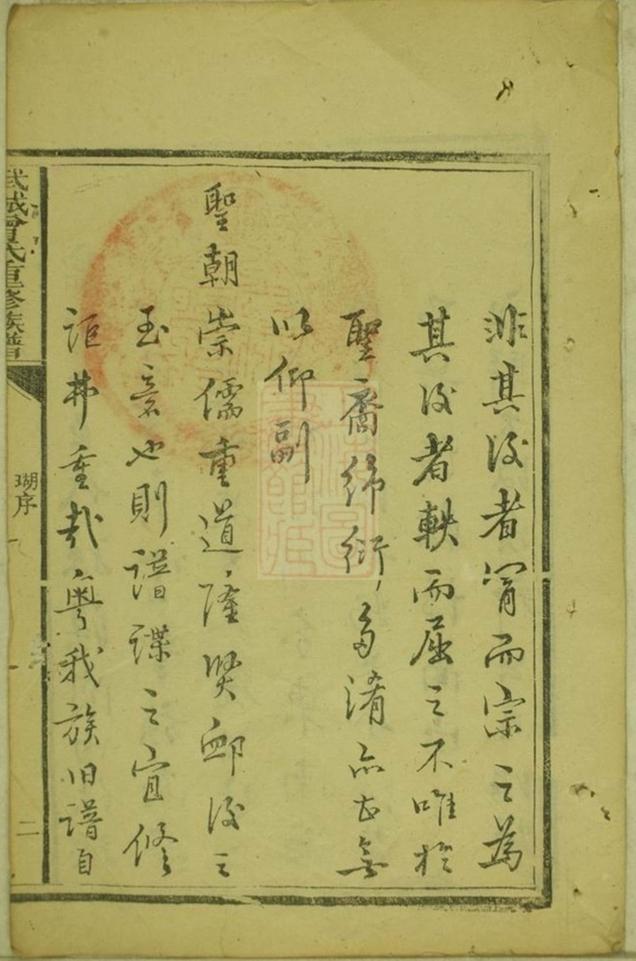 非其後者冐而宗之為
其後者軼而屈之不唯於
聖裔綿衍多淆亦且無
以仰副
聖朝崇儒重道隆賢卹後之
至意也則譜諜之宜修
詎弗重哉粵我族旧譜自
武城曾氏重修族譜
瑚序
二